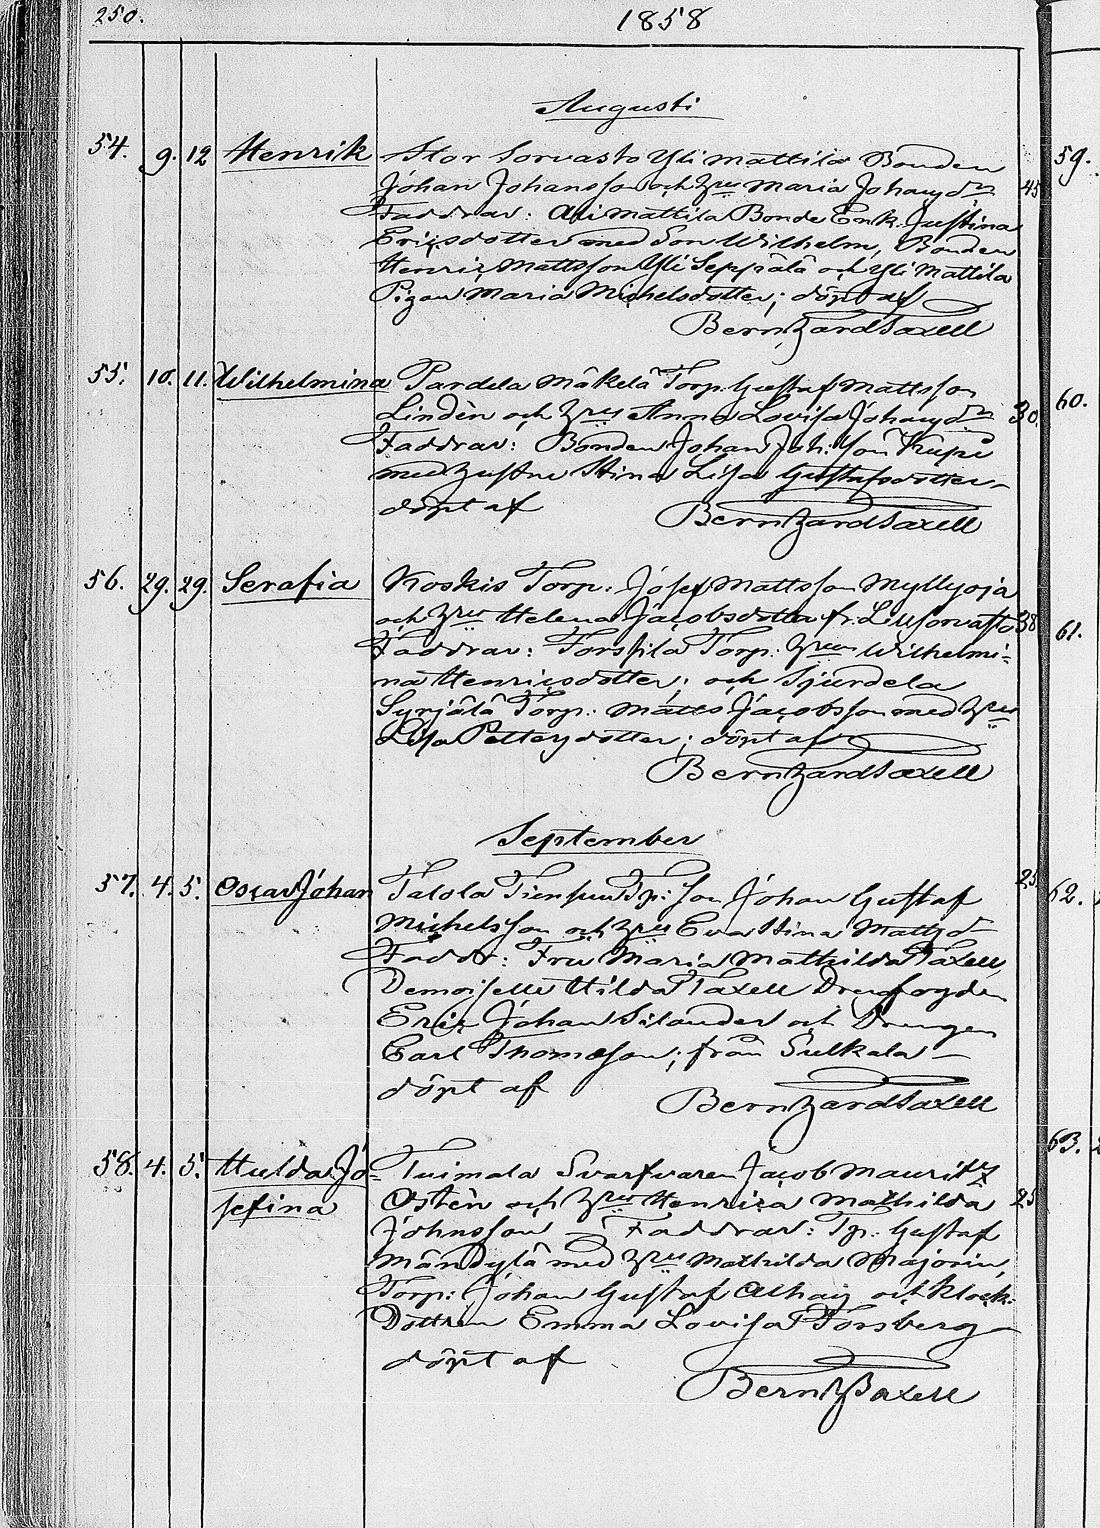 250.
1858
Augusti
54. 9. 12 Henrik Stor Sorvasto Yli Mattila Bonden
Johan Johansson och Hru Maria Johansd:r 45
Faddrar: Ali Mattila Bonde Enk. Justina
Ericsdotter med Son Wilhelm, Bonden
Henric Mattsson Yli Seppälä och Yli Mattila
Pigan Maria Michelsdotter; döpt af
Bernhard Taxell
55. 10. 11. Wilhelmina Pardela Mäkelä Torp. Gustaf Mattsson
Lindèn och Hru Anna Lovisa Johansd:r 30.
Faddrar: Bonden Johan Joh:sson Kupi
med hustru Stina Lisa Gustafsdotter
döpt af Bernhard Taxell
56. 29. 29. Serafia Koskis Torp: Josef Mattsson Myllyoja
och Hru Helena Jacobsdotter fr. Lill Sorvasto 38
Faddrar: Torp: Hrun Wilhelmi-
na Henricsdotter; och Sjurdela
Syrjälä Torp: Matts Jacobsson med Hru
Lisa Pettersdotter; döpt af
Bernhard Taxell
September
57. 4. 5. Oscar Johan Talola Tp: Son Johan Gustaf 25
Michelsson och Hru Eva Stina Mattsd
Faddr: Fru Maria Mathilda Taxell,
Demoiselle Hilda Taxell
Eric Johan Silander och Drengen
Carl Thomasson; från Sulkala
döpt af Bernhard Taxell
58. 4. 5. Hulda Jo- Tuimala Svarfvaren Jacob Mauritz
sefina Östèn och Hru Henrica Mathilda 25
Johnsson Faddrar: Tp: Gustaf
Mändylä med Hru Mathilda Majorin,
Torp: Johan Gustaf och Klock:
Dottren Emma Lovisa Forsberg
döpt af
Bernh Taxell
59.
60.
61.
62.
63.